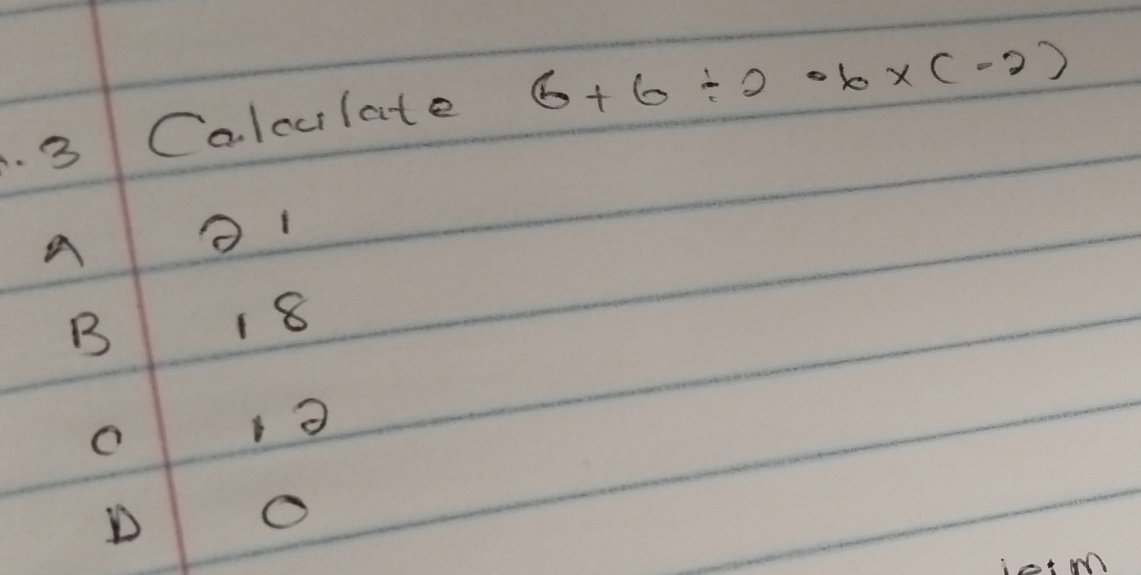 3 Calculate 6+6÷2-6×(-2)
A 21
B 18
C 12
D 0